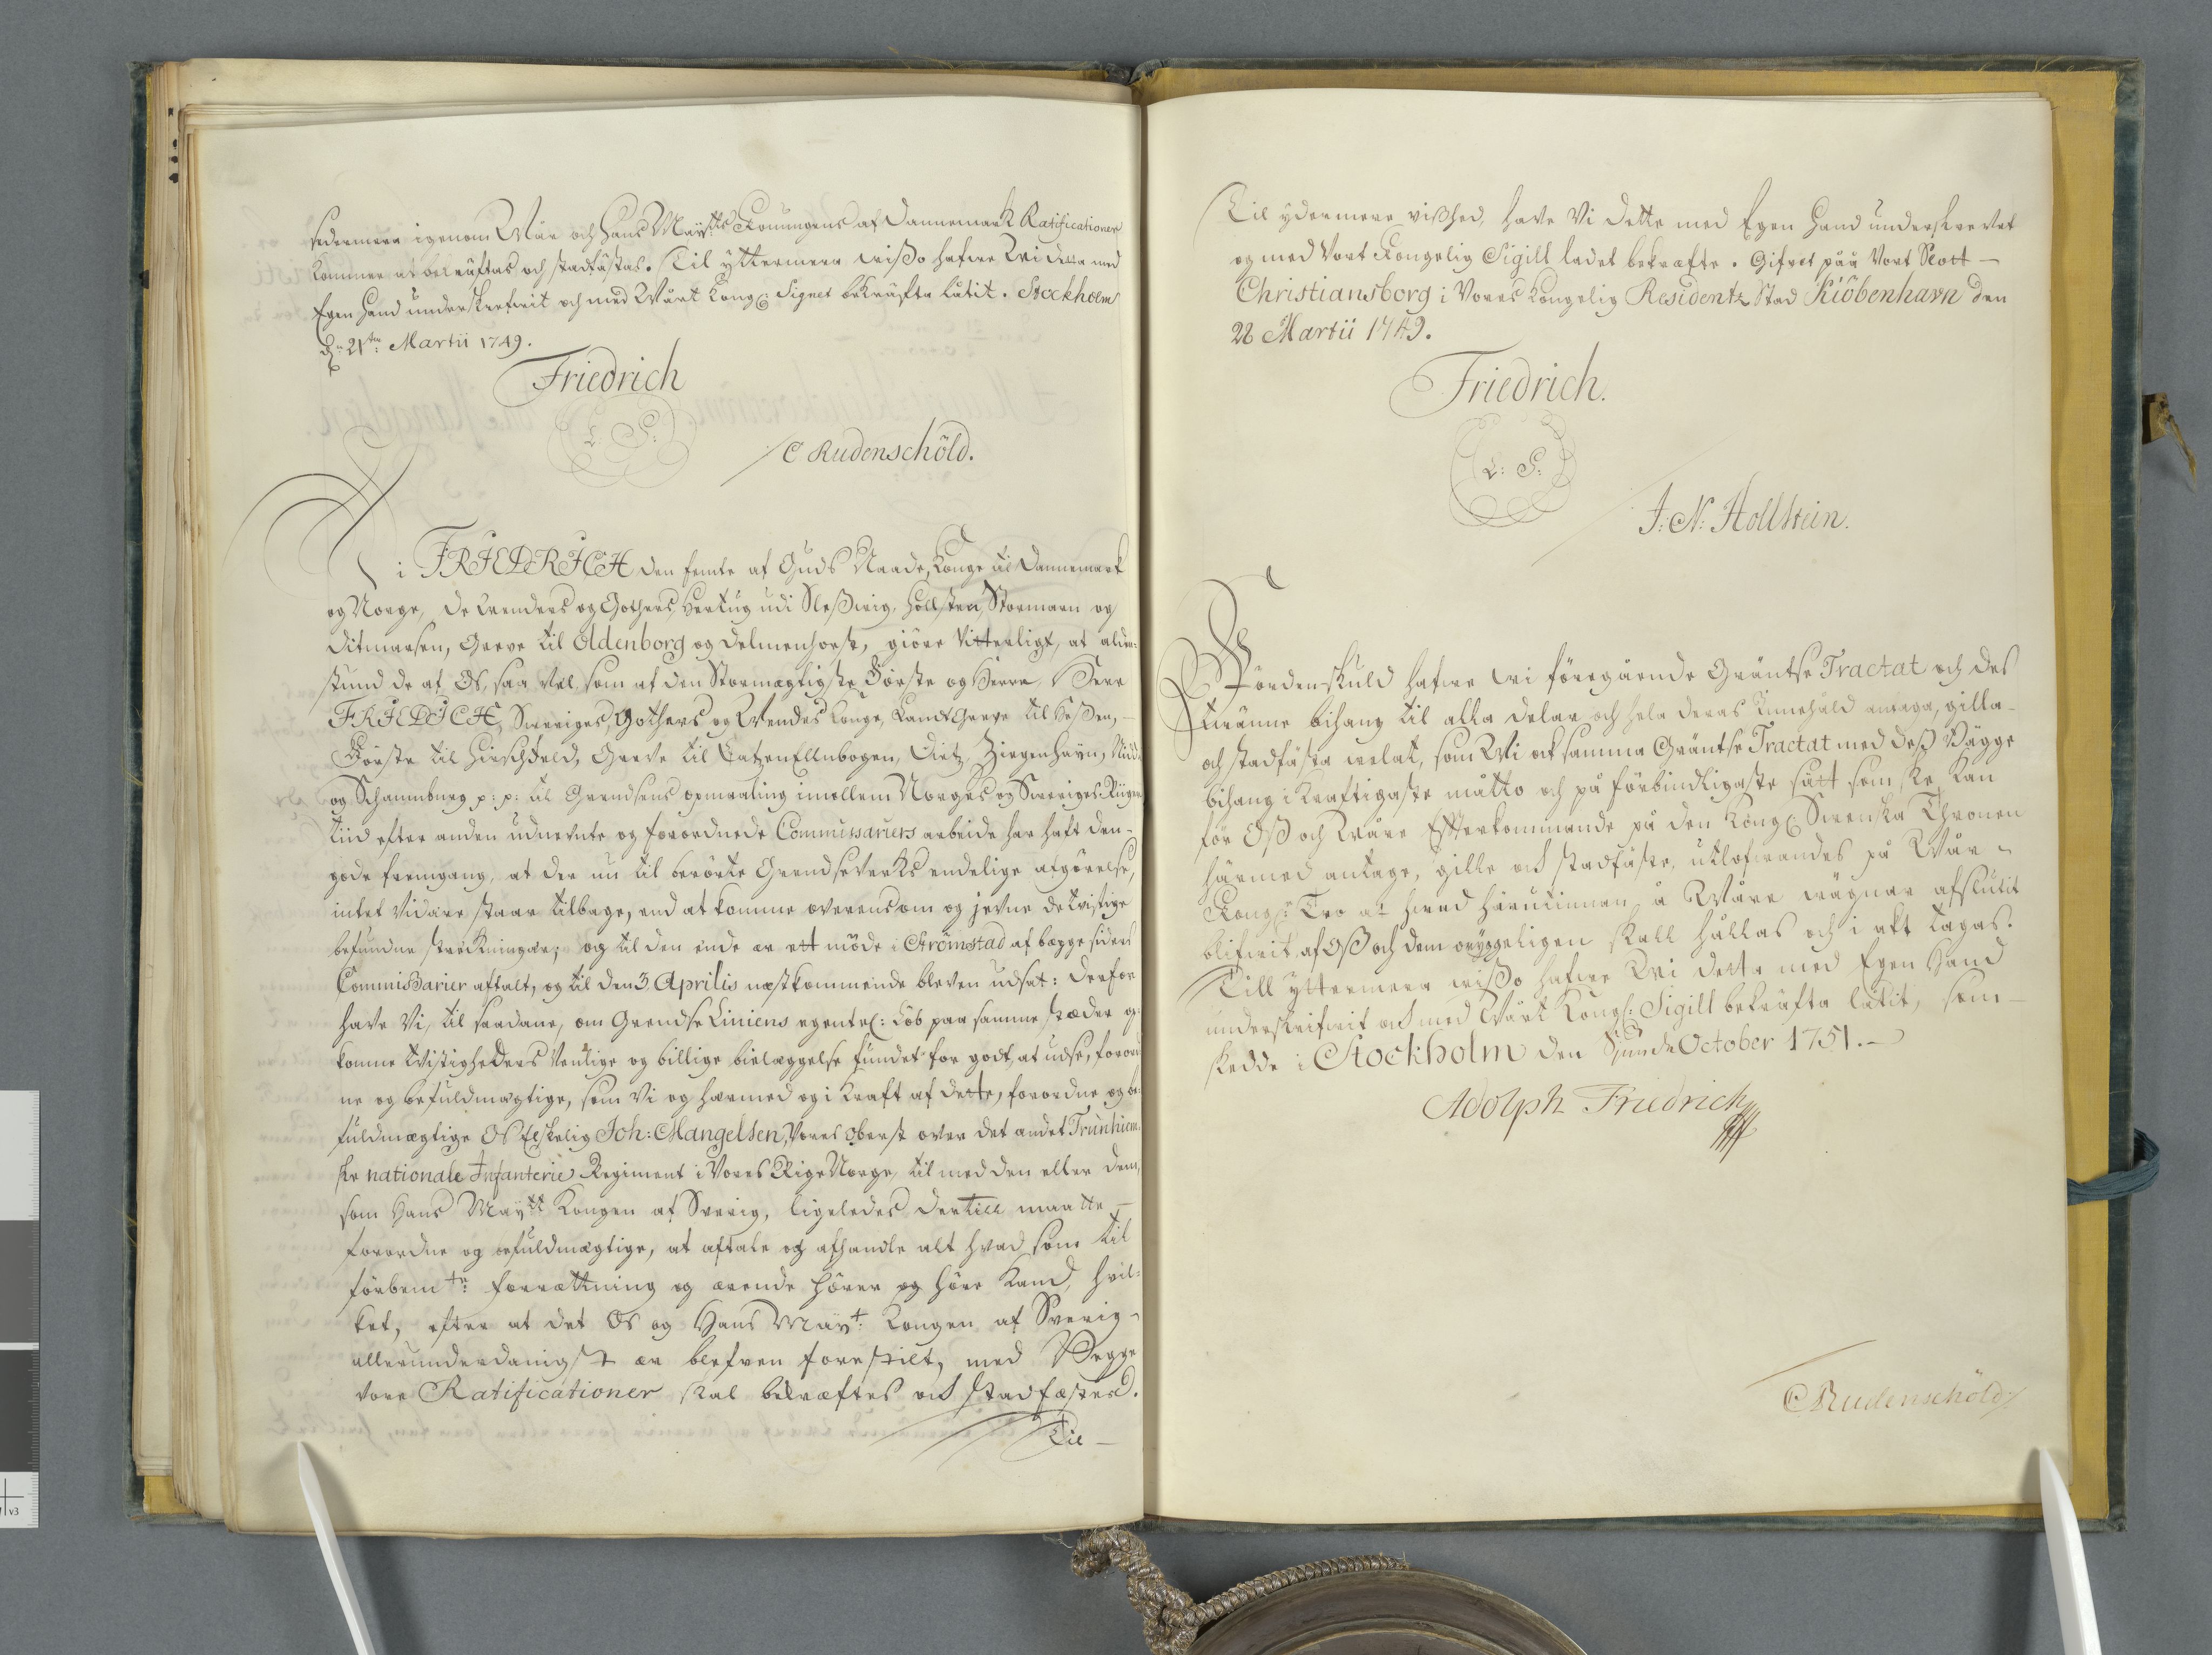 sedermera igenom Wår och Hans May:tts Konungens af Dannemark Ratificationer
kommer at bekräftas och stadfästas. Til yttermera wißo hafwe Wi detta med
Egen Hand underskrefwit och med Wårt Kongl: Signet bekräfta låtit. Stockholm
d: 21:ta Martii 1749.
Friedrich
L. S.
C Rudenschöld.
Vi FRIEDRICH den femte af Guds Naade, Konge til Dannemark
og Norge, de Venders og Gothers, Hertug udi Sleßwig, Hollsten, Stormarn og
Ditmarsen, Greve til Oldenborg og Delmenhorst, giöre Vitterligt, at alden-
stund de af Os, saa vel som af den Stormægtigste Förste og Herre, Herr
FRIEDICH, Sveriges, Gothers og Wendes Konge, LandtGreve til Heßen, -
Förste til Hirschfeld, Greve til CatzenEllnbogen, Dietz, Ziegenhayn, Nidd-
og Schaumburg p: p: til Grendsens opmaaling imellem Norges og Sverriges Riiger
tiid efter anden udnevnte og forordnede Commissariers arbeide har haft den-
gode fremgang, at der nu til berörte Grendseverks endelige afgörelse,
intet vidare staar tilbage, end at komme overens om og jevne de tvistige
befundne streckningar; og til den ende er ett möde i Strömstad af begge siders
Commißarier aftalt, og til den 3 Aprilis nestkommende bleven udsat: derfor
have Vi, til saadane, om Grendse Liniens egentel: Löb paa samme stæder op-
komne tvistigheders Venlige og billige bielæggelse fundet for godt, at udse, forord
ne og befuldmægtige, som Vi og hermed og i Kraft af dette, forordne og be-
fuldmægtige Os Elskelig Joh: Mangelsen, Vores Oberst over det andet Trunhiem-
ske nationale Infanterie Regiment i Vores Rige Norge, til med den eller dem,
som Hans May:tt Kongen af Sverig, ligeledes dertill maatte -
forordne og befuldmægtige, at aftale og afhandle alt hvad som til
förbem:te forrættning og ærende hörer og höre kand, hvil-
ket, efter at det Os og Hans May:t Kongen af Sverig -
allerunderdanigst er blefven forestilt, med Begge
Vore Ratificationer skal bekræftes och stadfæstes.
Til -
Til ydermere vißhed, have Vi dette med Egen Hand underskrevet
og med Vort Kongelig Sigill ladet bekræfte. Gifvet påå Vort Slott -
Christiansborg i Vores Kongelig Residentz Stad Kiöbenhavn den
28 Martii 1749.
Friedrich.
L: S:
J: N: Hollstein.
Fördenskuld hafwe wi föregående Gräntse Tractat och des
tvänne bihang til alla delar och hela deras Innehåld antaga, gilla -
och stadfästa welat, som Wi ock samma Gräntse Tractat med deß Bägge
bihang i kraftigaste måtto och på förbindligaste sätt som ske kan
för Oß och Wåre Efterkommande på den Kongl: Svenska Thronen
härmed antage, gille och stadfäste, utlofwandes på Wår -
Kongl: Tro at hwad härutinnan å Wåre wägnar afslutit
blifwit, af Oß och dem oryggeligen skall hållas och i akt tagas.
Till yttermera wißo hafwe Wi detta med Egen Hand
underskrifwit och med Wårt Kongl: Sigill bekräfta låtit, som -
skedde i Stockholm den Sjunde October 1751. -
Adolph Friedrich
C Rudenschöld